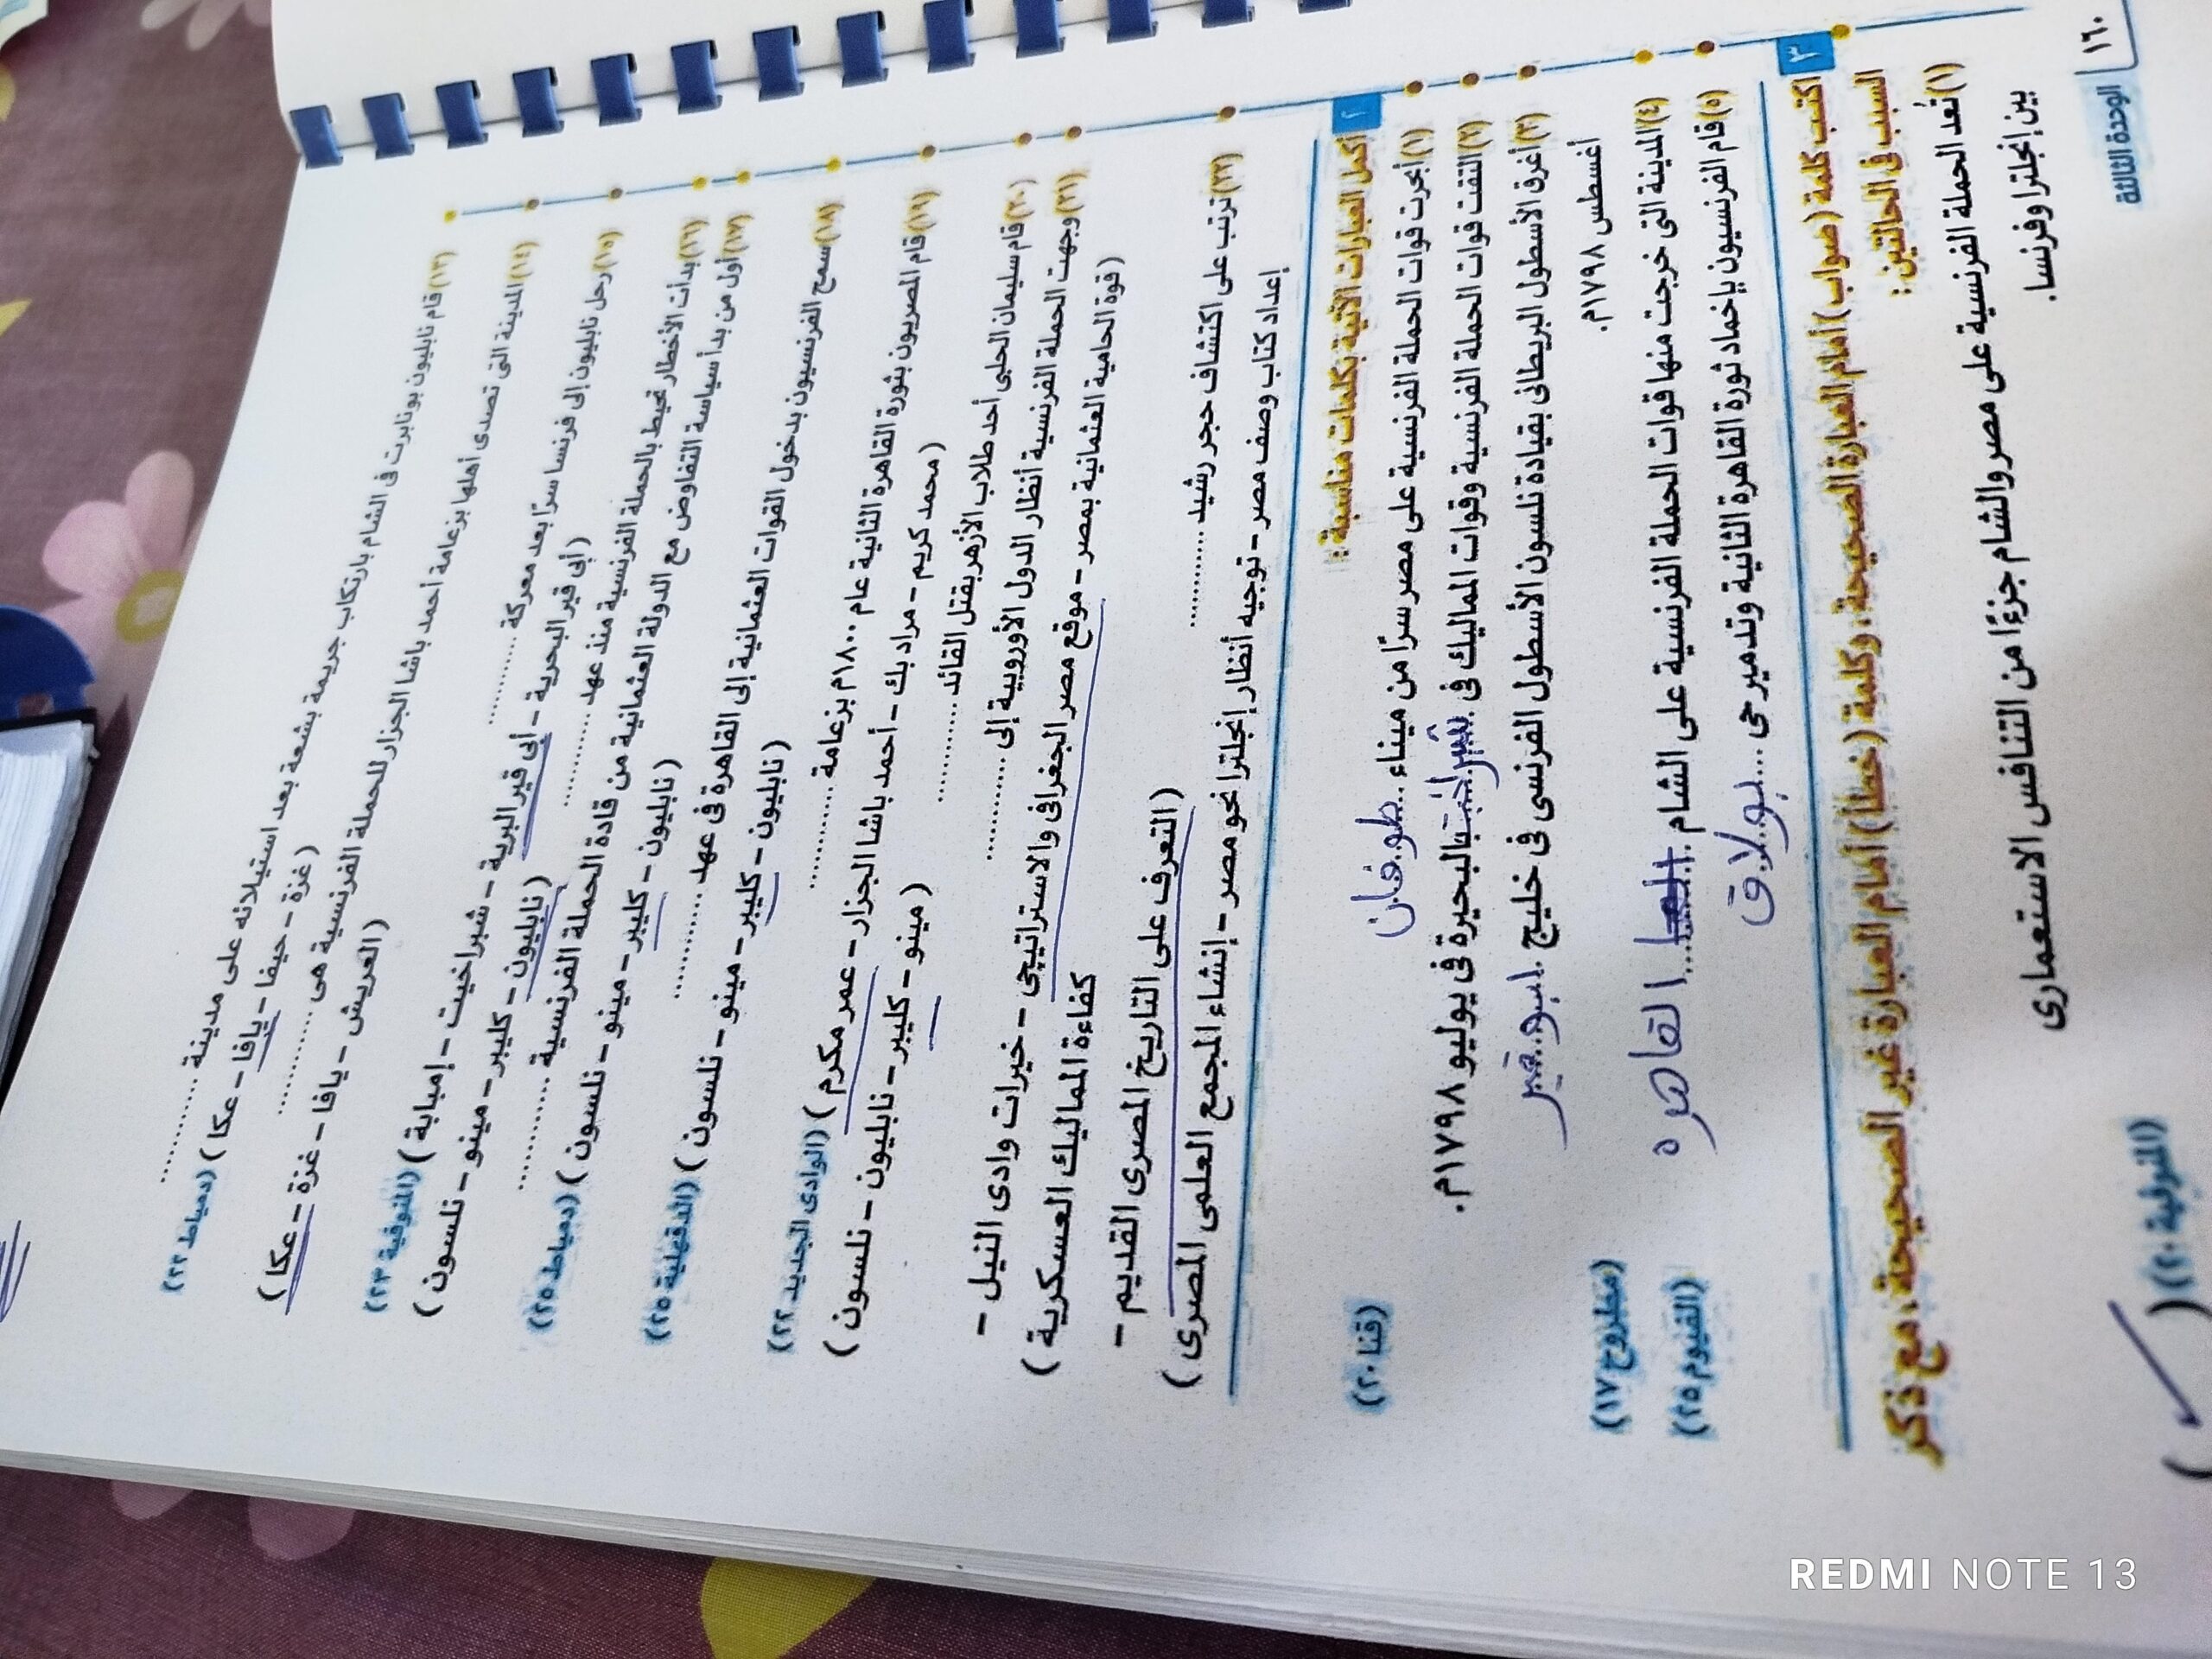 (١٣) قام نابليون بونابرت فى الشام بارتكاب جريمة بشعة بعد استيلائه على مدينة ............
(غزة - حيفا - يافا - عكا) (دمياط ٢٢)
(١٤) المدينة التى تصدى أهلها بزعامة أحمد باشا الجزار للحملة الفرنسية هى ............
(العريش - يافا - غزة - عكا)
(١٥) رحل نابليون إلى فرنسا سرًا بعد معركة ............
(أبى قير البحرية - أبى قير البرية - شبراخيت - إمبابة) (المنوفية ٢٣)
(١٦) بدأت الأخطار تحيط بالحملة الفرنسية منذ عهد ............
(نابليون - كليبر - مينو - نلسون)
(١٧) أول من بدأ سياسة التفاوض مع الدولة العثمانية من قادة الحملة الفرنسية ............
(نابليون - كليبر - مينو - نلسون) (دمياط ٢٥)
(١٨) سمح الفرنسيون بدخول القوات العثمانية إلى القاهرة فى عهد ............
(نابليون - كليبر - مينو - نلسون) (الدقهلية ٢٥)
(١٩) قام المصريون بثورة القاهرة الثانية عام ١٨٠٠م بزعامة ............
(محمد كريم - مراد بك - أحمد باشا الجزار - عمر مكرم) (الوادى الجديد ٢٢)
(٢٠) قام سليمان الحلبى أحد طلاب الأزهر بقتل القائد ............
(مينو - كليبر - نابليون - نلسون)
(٢١) وجهت الحملة الفرنسية أنظار الدول الأوروبية إلى ............
(قوة الحامية العثمانية بمصر - موقع مصر الجغرافى والاستراتيجى - خيرات وادى النيل -
كفاءة المماليك العسكرية)
(٢٢) ترتب على اكتشاف حجر رشيد ............
(التعرف على التاريخ المصرى القديم -
إعداد كتاب وصف مصر - توجيه أنظار إنجلترا نحو مصر - إنشاء المجمع العلمى المصرى)
٢ أكمل العبارات الآتية بكلمات مناسبة :
(١) أبحرت قوات الحملة الفرنسية على مصر سرًا من ميناء ... طوفان (قنا ٢٠)
(٢) التقت قوات الحملة الفرنسية وقوات المماليك فى شبراخيت بالبحيرة فى يوليو ١٧٩٨م.
(٣) أغرق الأسطول البريطانى بقيادة نلسون الأسطول الفرنسى فى خليج ابو قير
أغسطس ١٧٩٨م.
(٤) المدينة التى خرجت منها قوات الحملة الفرنسية على الشام ... القاهره (مطروح ١٧)
(٥) قام الفرنسيون بإخماد ثورة القاهرة الثانية وتدمير حى ... بولاق (الفيوم ٢٥)
٣ اكتب كلمة (صواب) أمام العبارة الصحيحة، وكلمة (خطأ) أمام العبارة غير الصحيحة، مع ذكر
السبب فى الحالتين :
(١) تُعد الحملة الفرنسية على مصر والشام جزءًا من التنافس الاستعمارى
بين إنجلترا وفرنسا. (المنوفية ٢٠) ( )
١٦٠ الوحدة الثالثة
REDMI NOTE 13